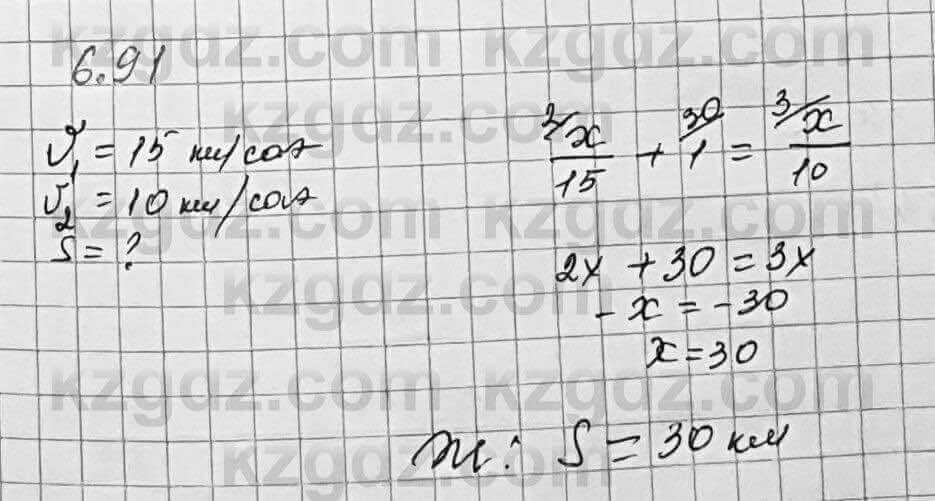 kzgdz.com kzgdz.com
6.91
υ₁ = 15 км/сағ
υ₂ = 10 км/сағ
S = ?
kzgdz.com
kzgdz.com kzgdz.com
kzgdz.com
kzgdz.com kzgdz.com
kzgdz.com
2/x/15 + 30/1 = 3/x/10
2x + 30 = 3x
- x = -30
x = 30
Ж: S = 30 км